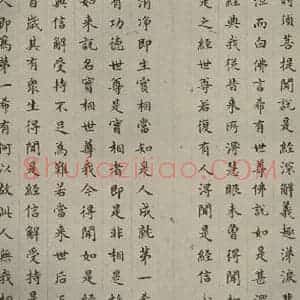 時須菩提聞說是經深解義趣涕淚
泣而白佛言希有世尊佛說如是甚深
經典我從昔來所得慧眼未曾得聞如
是之經世尊若復有人得聞是經信
清淨即生實相當知是人成就第一希
有功德世尊是實相者即是非相是
如來說名實相世尊我今得聞如是經
典信解受持不足為難若當來世后五
百歲其有眾生得聞是經信解受持
人即為第一希有何以故此人無我相
Shufaziliao.COM